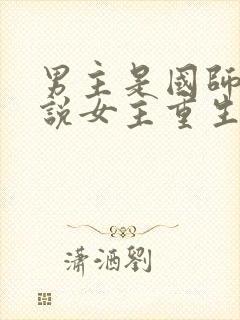 男主是國師
說女主重生
瀟洒劉